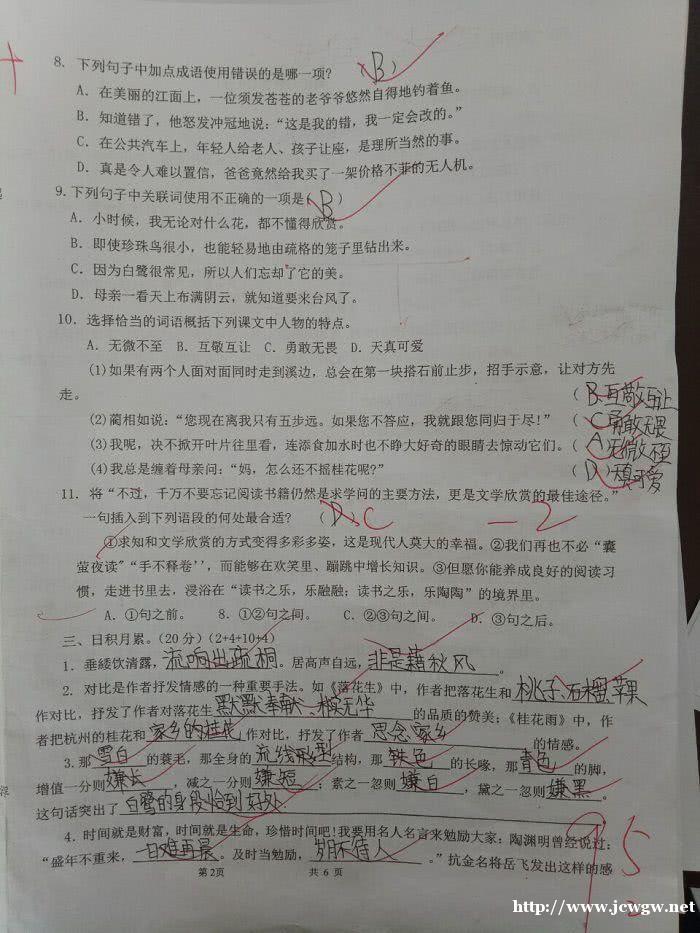 8. 下列句子中加点成语使用错误的是哪一项? (B)
A. 在美丽的江面上,一位须发苍苍的老爷爷悠然自得地钓着鱼。
B. 知道错了,他怒发冲冠地说:“这是我的错,我一定会改的。”
C. 在公共汽车上,年轻人给老人、孩子让座,是理所当然的事。
D. 真是令人难以置信,爸爸竟然给我买了一架价格不菲的无人机。
9. 下列句子中关联词使用不正确的一项是(B)
A. 小时候,我无论对什么花,都不懂得欣赏。
B. 即使珍珠鸟很小,也能轻易地由疏格的笼子里钻出来。
C. 因为白鹭很常见,所以人们忘却了它的美。
D. 母亲一看天上布满阴云,就知道要来台风了。
10. 选择恰当的词语概括下列课文中人物的特点。
A. 无微不至 B. 互敬互让 C. 勇敢无畏 D. 天真可爱
(1)如果有两个人面对面同时走到溪边,总会在第一块搭石前止步,招手示意,让对方先
走。 (B.互敬互让
(2)蔺相如说:“您现在离我只有五步远。如果您不答应,我就跟您同归于尽!” (C勇敢无畏
(3)我呢,决不掀开叶片往里看,连添食加水时也不睁大好奇的眼睛去惊动它们。 (A无微不至
(4)我总是缠着母亲问:“妈,怎么还不摇桂花呢?” (D)天真可爱
11. 将“不过,千万不要忘记阅读书籍仍然是求学问的主要方法,更是文学欣赏的最佳途径。”
一句插入到下列语段的何处最合适? (D) C -2
①求知和文学欣赏的方式变得多彩多姿,这是现代人莫大的幸福。②我们再也不必“囊
萤夜读”“手不释卷”,而能够在欢笑里、蹦跳中增长知识。③但愿你能养成良好的阅读习
惯,走进书里去,浸浴在“读书之乐,乐融融;读书之乐,乐陶陶”的境界里。
A. ①句之前。 8. ①②句之间。 C. ②③句之间。 D. ③句之后。
三、日积月累。(20分)(2+4+10+4)
1. 垂緌饮清露,流响出疏桐。居高声自远,非是藉秋风。
2. 对比是作者抒发情感的一种重要手法。如《落花生》中,作者把落花生和桃子、石榴、苹果
作对比,抒发了作者对落花生默默奉献、朴实无华的品质的赞美;《桂花雨》中,作
者把杭州的桂花和家乡的桂花作对比,抒发了作者思念家乡的情感。
3. 那雪白的蓑毛,那全身的流线型结构,那铁色的长喙,那青色的脚,
增值一分则嫌长,减之一分则嫌短;素之一忽则嫌白,黛之一忽则嫌黑。
这句话突出了白鹭的身段恰到好处.
4. 时间就是财富,时间就是生命,珍惜时间吧!我要用名人名言来勉励大家:陶渊明曾经说过:
“盛年不重来,一日难再晨。及时当勉励,岁月不待人。”抗金名将岳飞发出这样的感
95
第2页 共 6 页
http://www.jcwgw.net